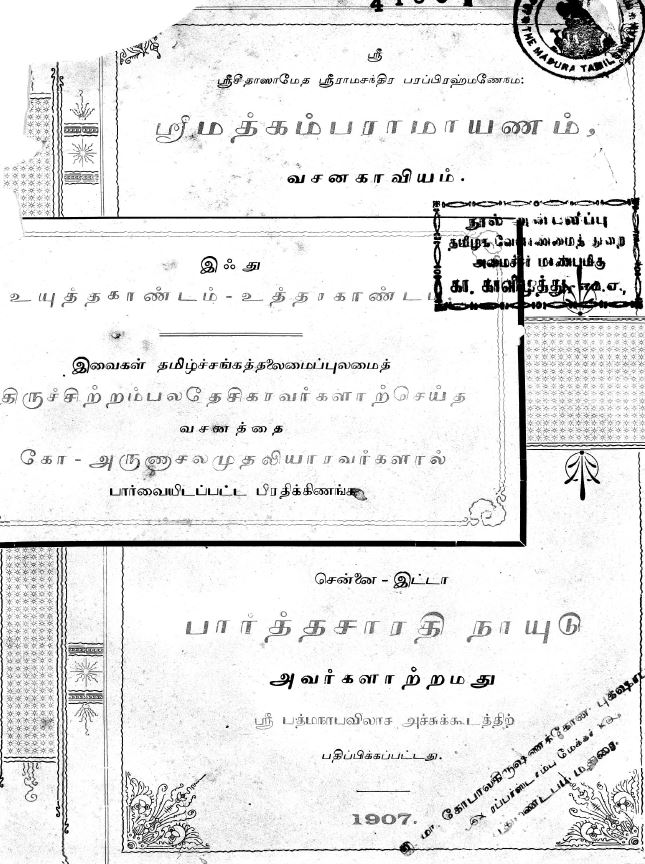 ஸ்ரீ
ஸ்ரீசீதாஸமேத ஸ்ரீராமசந்திர பரப்பிரஹ்மணேநம:
ஸ்ரீமத்கம்பராமாயணம்,
வசனகாவியம்.
THE MADURA TAMIL
நூல்
தமிழக வேளாண்மைத் துறை
அமைச்சர் மாண்புமிகு
கா. காளிமுத்து, எம்.ஏ.,
இஃது
உயுத்தகாண்டம் - உத்தரகாண்டம்
இவைகள் தமிழ்ச்சங்கத்தலைமைப்புலமைத்
திருச்சிற்றம்பலதேசிகரவர்களாற்செய்த
வசனத்தை
கோ - அருணாசலமுதலியாரவர்களால்
பார்வையிடப்பட்ட பிரதிக்கிணங்க
சென்னை - இட்டா
பார்த்தசாரதி நாயுடு
அவர்களாற்றமது
ஸ்ரீ பத்மநாபவிலாச அச்சுக்கூடத்திற்
பதிப்பிக்கப்பட்டது.
1907.
மா. கோபாலகிருஷ்ணக்கோன்
மதுரை.